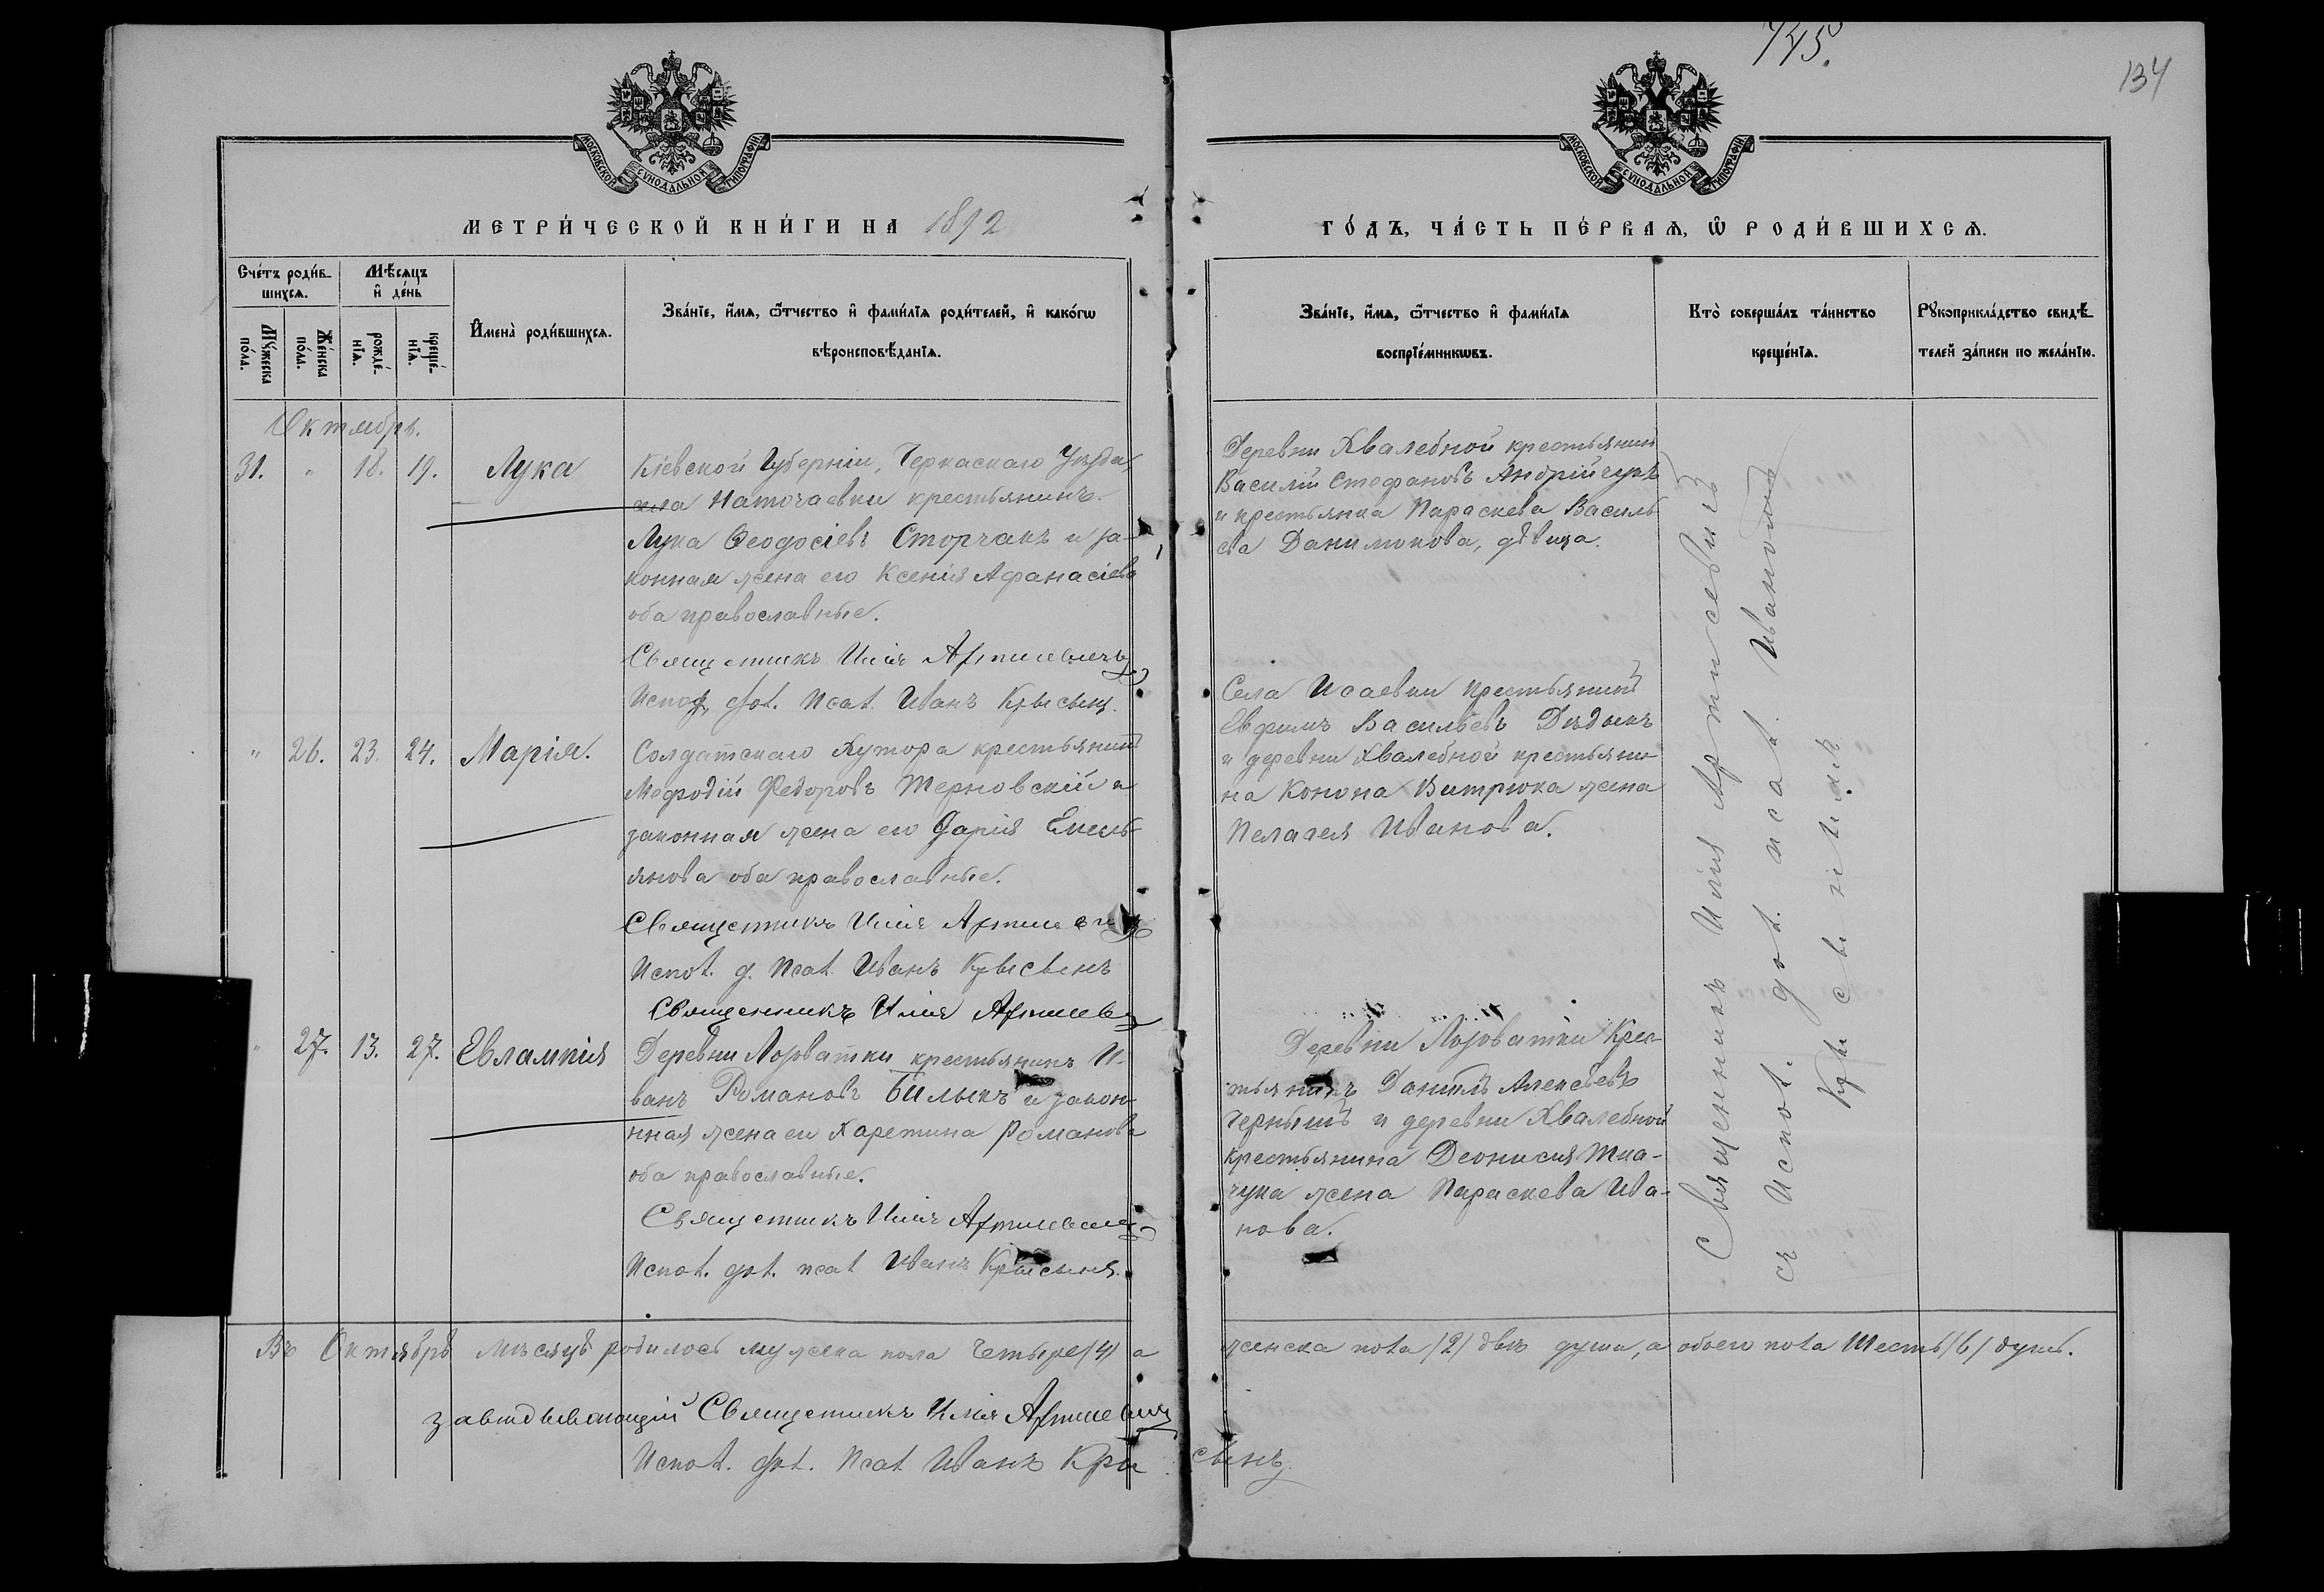 745.
134
МОСКОВСКОЙ СУНОДАЛЬНОЙ ТИПОГРАФІИ
МОСКОВСКОЙ СУНОДАЛЬНОЙ ТИПОГРАФІИ
МЕТРИ́ЧЕСКОЙ КНИ́ГИ НА 1892
ГО́ДЪ, ЧА́СТЬ ПЕ́РВАѦ, Ѡ҆ РОДИ́ВШИХСѦ.
Сче́тъ роди́в-
шихсѧ.
Мѣ́сѧцъ
и҆ де́нь
Му́жеска
по́ла.
Же́нска
по́ла.
рожде́-
нїѧ.
креще́-
нїѧ.
И҆мена̀ роди́вшихсѧ.
Зва́нїе, и҆́мѧ, ѻ҆́тчество и҆ фами́лїѧ роди́телей, и҆ како́гѡ
вѣроисповѣ́данїѧ.
Зва́нїе, и҆́мѧ, ѻ҆́тчество и҆ фами́лїѧ
воспрїе́мникѡвъ.
Кто̀ соверша́лъ та́инство
креще́нїѧ.
Рꙋкоприкла́дство свидѣ́-
телей за́писи по жела́нїю.
Октябрь.
31. " 18. 19. Лука
Кіевской Губерніи, Черкаскаго Уѣзда,
села Наточаевки крестьянинъ
Лука Ѳеодосіевъ Сторчакъ и за-
конная жена его Ксенія Афанасіева
оба православные.
Священникъ Илія Артисевичъ
Испол. дол. Псал. Иванъ Крысынъ.
Деревни Хвалебной крестьянинъ
Василій Стефановъ Андрійчукъ
и крестьянка Параскева Василь-
ева Данилюкова, дѣвица.
" 26. 23. 24. Марія.
Солдатскаго Хутора крестьянинъ
Меѳодій Федоровъ Терновскій и
законная жена его Дарія Емель-
янова оба православные.
Священникъ Илія Артисевичъ
Испол. д. Псал. Иванъ Крысынъ
Села Исаевки крестьянинъ
Евфимъ Васильевъ Дѣдыкъ
и деревни Хвалебной крестьяни-
на Конона Витрюка жена
Пелагея Иванова.
Священникъ Илія Артисев
" 27. 13. 27. Евлампія
Деревни Лозоватки крестьянинъ И-
ванъ Романовъ Билыкъ и закон-
ная жена его Харетина Романова
оба православные.
Священникъ Илія Артисевичъ
Испол. дол. псал Иванъ Крысынъ.
Деревни Лозоватки Крес-
тьянинъ Даниилъ Алексѣевъ
Чернышъ и деревни Хвалебной
крестьянина Деонисія Тка-
чука жена Параскева Ива-
нова.
Священникъ Илія Артисевичъ
съ Испол. дол. псал. Иваномъ
Крысынымъ
Въ Октябрѣ мѣсяцѣ родилось мужеска пола Четыре /4/ а женска пола /2/ двѣ души, а обоего пола Шесть /6/ душъ.
завѣдывающій Священникъ Илія Артисевичъ
Испол. дол. Псал Иванъ Крысынъ